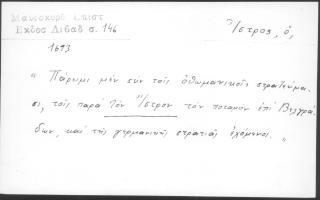 Μαυροκορδ Επιστ
Εκδος Λιβαδ σ. 146
Ἴστρος, ὁ,
1693
" Πάρειμι μὲν σὺν τοῖς ὀθωμανικοῖς στρατεύμα-
σι, τοῖς παρὰ τὸν Ἴστρον τὸν ποταμὸν ἐπὶ Βελγρά-
δων, καὶ τῆς γερμανικῆς στρατιᾶς ἐχόμενοι. "